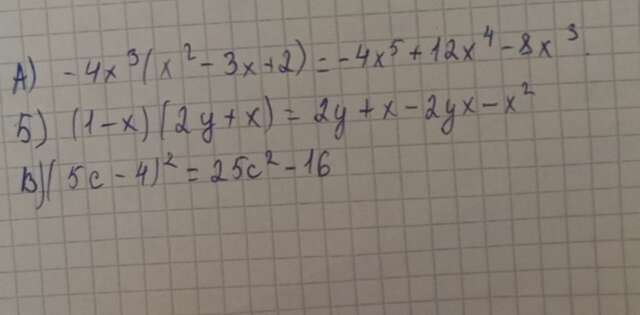 А) -4x³(x² - 3x + 2) = -4x⁵ + 12x⁴ - 8x³.
Б) (1 - x)(2y + x) = 2y + x - 2yx - x²
В) (5c - 4)² = 25c² - 16